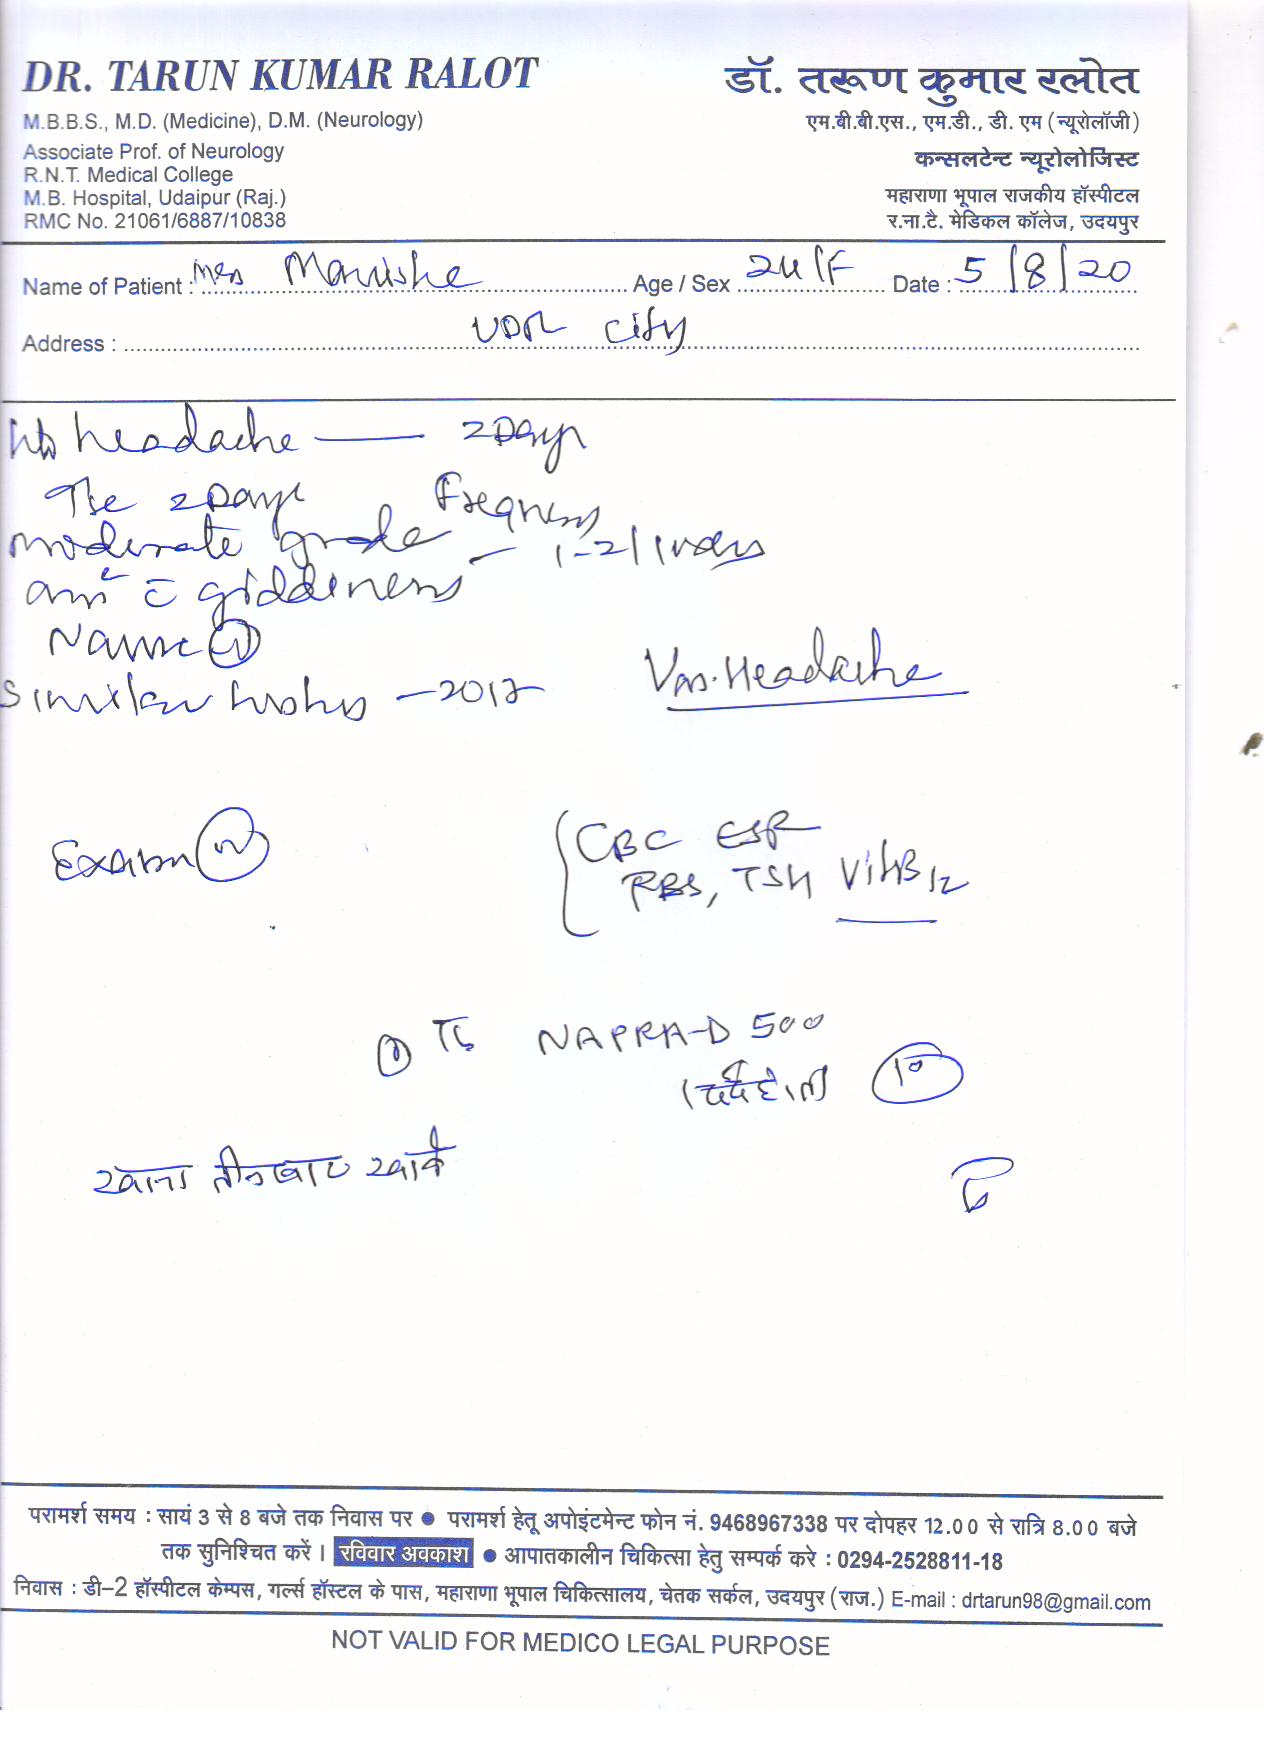 DR. TARUN KUMAR RALOT
M.B.B.S., M.D. (Medicine), D.M. (Neurology)
Associate Prof. of Neurology
R.N.T. Medical College
M.B. Hospital, Udaipur (Raj.)
RMC No. 21061/6887/10838
डॉ. तरूण कुमार रलोत
एम.बी.बी.एस., एम.डी., डी. एम (न्यूरोलॉजी)
कन्सलटेन्ट न्यूरोलोजिस्ट
महाराणा भूपाल राजकीय हॉस्पीटल
र.ना.टै. मेडिकल कॉलेज, उदयपुर
Name of Patient : Age / Sex 24/F Date : 5/8/20
Address : UDR city
headache — 2 Days
The 2 Days
moderate grade
- 1-2/
c̄ giddiness
Similar history -
Vas. Headache
Exam (N)
CBC ESR
RBS, TSH Vit B12
① NAPRA-D 500
(दर्द हो तो) 10
खाना तीन बार खावें
परामर्श समय : सायं 3 से 8 बजे तक निवास पर ● परामर्श हेतू अपोइंटमेन्ट फोन नं. 9468967338 पर दोपहर 12.00 से रात्रि 8.00 बजे
तक सुनिश्चित करें । रविवार अवकाश ● आपातकालीन चिकित्सा हेतु सम्पर्क करे : 0294-2528811-18
निवास : डी-2 हॉस्पीटल केम्पस, गर्ल्स हॉस्टल के पास, महाराणा भूपाल चिकित्सालय, चेतक सर्कल, उदयपुर (राज.) E-mail : drtarun98@gmail.com
NOT VALID FOR MEDICO LEGAL PURPOSE